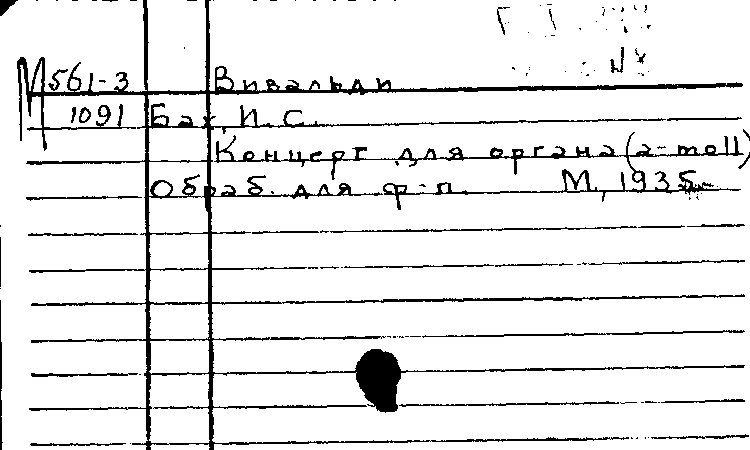 М 561-3 Вивальди
1091 Бах, И. С.
Концерт для органа (a-moll)
Обраб. для ф-п. М., 1935